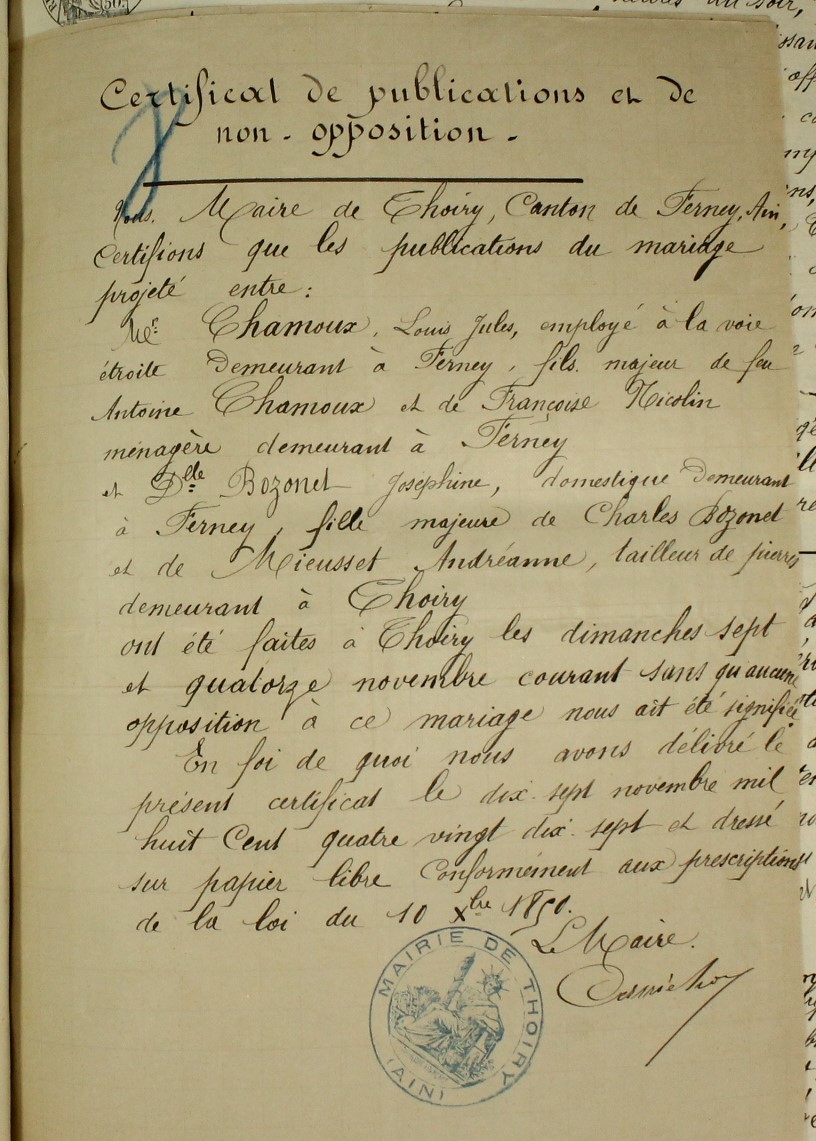 Certificat de publications et de
non - opposition -
Nous, Maire de Thoiry, Canton de Ferney, Ain,
Certifions que les publications du mariage
projeté entre :
Mr Chamoux, Louis Jules, employé à la voie
étroite Demeurant à Ferney, fils majeur de feu
Antoine Chamoux et de Françoise Nicolin
ménagère demeurant à Ferney
et Dlle Bozonet Joséphine, domestique Demeurant
à Ferney, fille majeure de Charles Bozonet
et de Mieusset Andréanne, tailleur de pierres
demeurant à Thoiry
ont été faites à Thoiry les dimanches sept
et quatorze novembre courant sans qu'aucune
opposition à ce mariage nous ait été signifiée
En foi de quoi nous avons délivré le
présent certificat le dix-sept novembre mil
huit Cent quatre vingt dix-sept et dressé
sur papier libre Conformément aux prescriptions
de la loi du 10 Xbre 1850.
Le Maire.
MAIRIE DE THOIRY
(AIN)